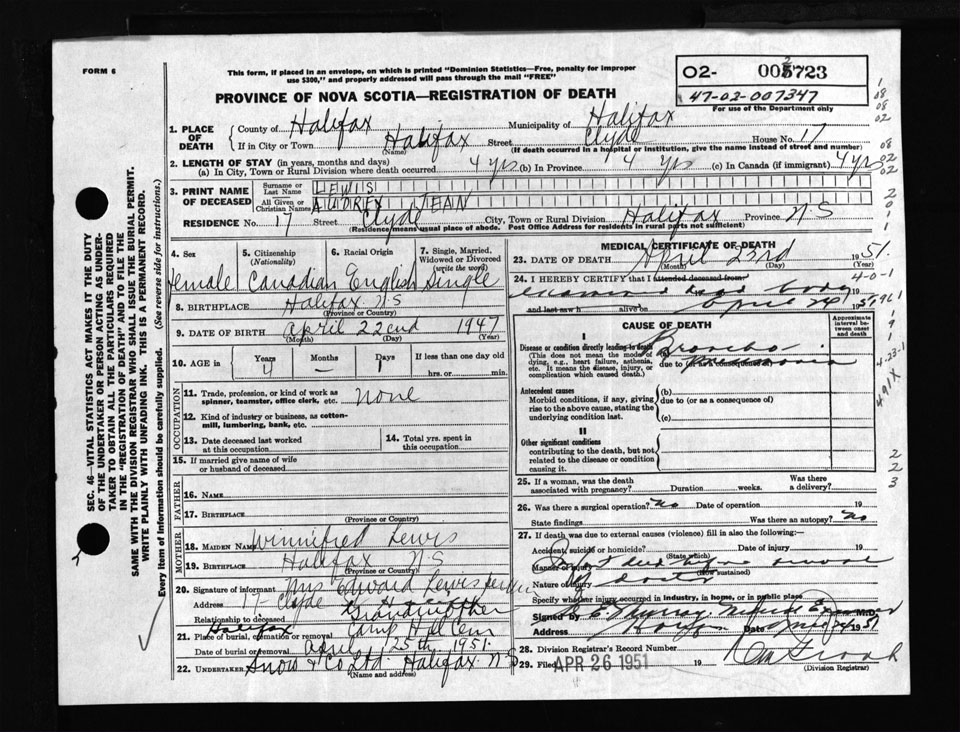 FORM 6
This form, if placed in an envelope, on which is printed "Dominion Statistics—Free, penalty for improper
use $300," and properly addressed will pass through the mail "FREE"
PROVINCE OF NOVA SCOTIA—REGISTRATION OF DEATH
02- 723
47-02-007347
For use of the Department only
1. PLACE OF DEATH
County of Halifax Municipality of Halifax
If in City or Town Halifax Street Clyde House No. 17
(Name) (If death occurred in a hospital or institution, give the name instead of street and number)
2. LENGTH OF STAY (in years, months and days)
(a) In City, Town or Rural Division where death occurred 4 yrs (b) In Province 4 yrs (c) In Canada (if immigrant) 4 yrs
3. PRINT NAME OF DECEASED
Surname or Last Name LEWIS
All Given or Christian Names AUDREY JEAN
RESIDENCE No. 17 Street Clyde City, Town or Rural Division Halifax Province N S
(Residence means usual place of abode. Post Office Address for residents in rural parts not sufficient)
4. Sex 5. Citizenship (Nationality) 6. Racial Origin 7. Single, Married, Widowed or Divorced (write the word)
Female Canadian English Single
8. BIRTHPLACE Halifax N S
(Province or Country)
9. DATE OF BIRTH April 22nd 1947
(Month) (Day) (Year)
10. AGE in Years Months Days If less than one day old
4 — 1 hrs. or min.
OCCUPATION
11. Trade, profession, or kind of work as
spinner, teamster, office clerk, etc. none
12. Kind of industry or business, as cotton-
mill, lumbering, bank, etc.
13. Date deceased last worked
at this occupation
14. Total yrs. spent in
this occupation
15. If married give name of wife
or husband of deceased
FATHER
16. NAME
17. BIRTHPLACE
(Province or Country)
MOTHER
18. MAIDEN NAME Winnifred Lewis
19. BIRTHPLACE Halifax N S
(Province or Country)
20. Signature of informant Mrs Edward Lewis
Address 17 Clyde
Relationship to deceased Grandmother
21. Place of burial, cremation or removal Halifax Camp Hill Cem
Date of burial or removal April 25th 1951.
22. UNDERTAKER Snow & Co Ltd. Halifax. N S
(Name and address)
MEDICAL CERTIFICATE OF DEATH
23. DATE OF DEATH April 23rd 1951.
(Month) (Day) (Year)
24. I HEREBY CERTIFY that I attended deceased from
examined dead body 19
and last saw h alive on April 24 1951
CAUSE OF DEATH
Approximate interval between onset and death
I
Disease or condition directly leading to death
(This does not mean the mode of
dying, e.g., heart failure, asthenia,
etc. It means the disease, injury, or
complication which caused death.)
Broncho
due to (or as a consequence of)
Pneumonia
Antecedent causes
Morbid conditions, if any, giving
rise to the above cause, stating the
underlying condition last.
(b)
due to (or as a consequence of)
(c)
II
Other significant conditions
contributing to the death, but not
related to the disease or condition
causing it.
25. If a woman, was the death
associated with pregnancy? Duration weeks. Was there
a delivery?
26. Was there a surgical operation? No Date of operation 19
State findings Was there an autopsy? No
27. If death was due to external causes (violence) fill in also the following:—
Accident, suicide or homicide? Date of injury 19
(State which)
Manner of injury
(How sustained)
Nature of injury doctor
Specify whether injury occurred in industry, in home, or in public place
Signed by Murray M.D.
Address Date 24 1951
28. Division Registrar's Record Number
29. Filed APR 26 1951
(Division Registrar)
SEC. 46—VITAL STATISTICS ACT MAKES IT THE DUTY
OF THE UNDERTAKER OR PERSON ACTING AS UNDER-
TAKER TO OBTAIN ALL THE PARTICULARS REQUIRED
IN THE "REGISTRATION OF DEATH" AND TO FILE THE
SAME WITH THE DIVISION REGISTRAR WHO SHALL ISSUE THE BURIAL PERMIT.
WRITE PLAINLY WITH UNFADING INK. THIS IS A PERMANENT RECORD.
Every item of Information should be carefully supplied. (See reverse side for instructions).
4-0-1
4-23-1
491X
2
2
3